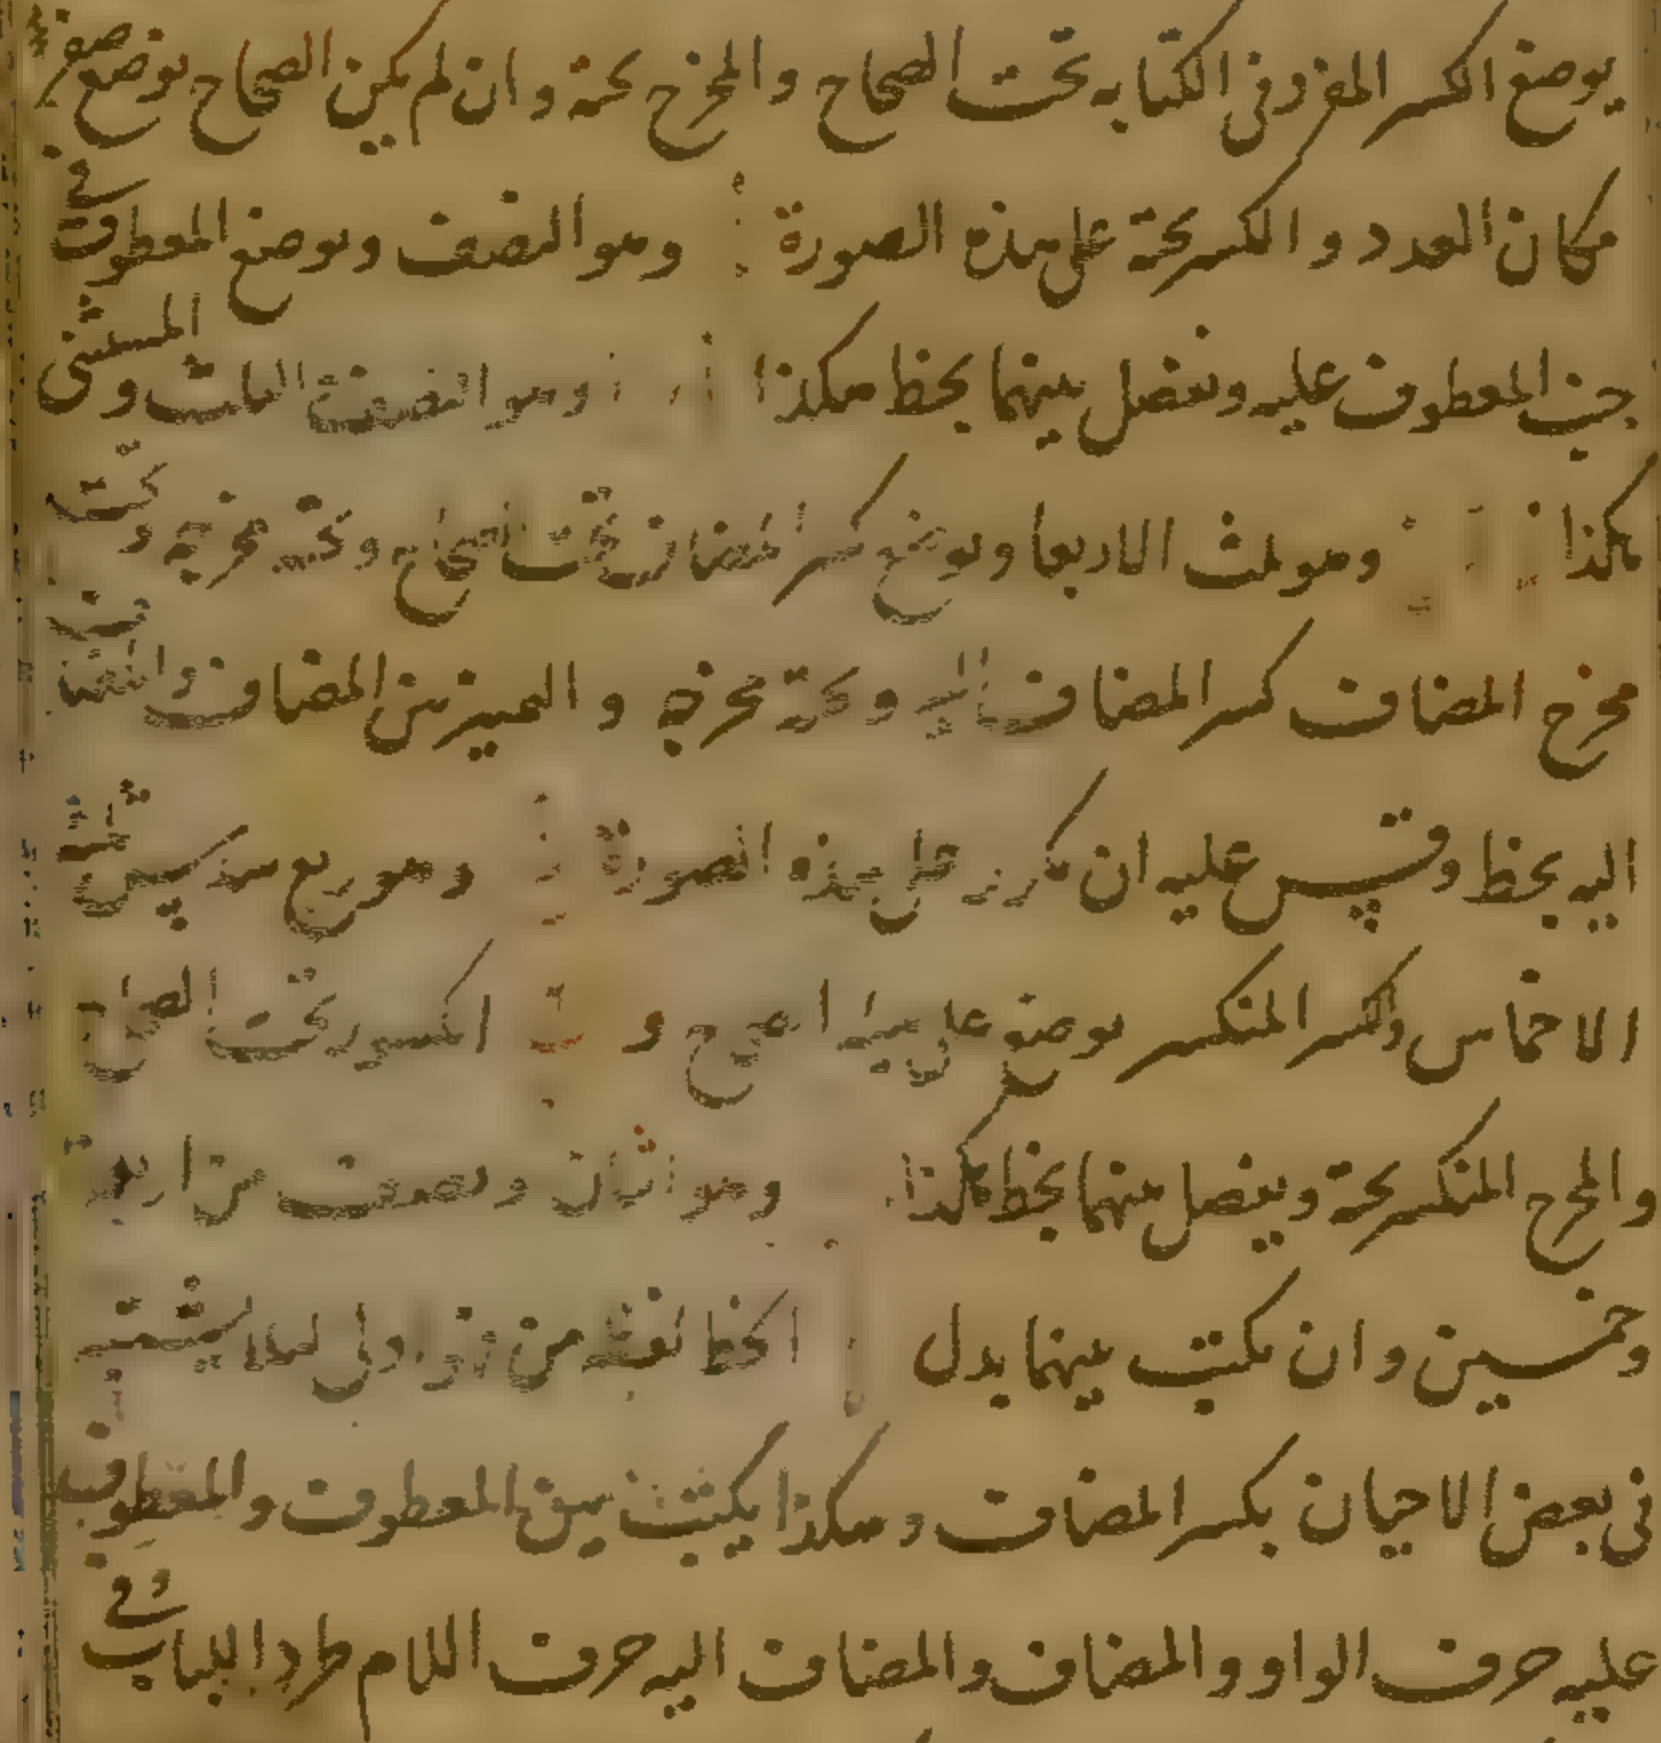 يوضع الكسر المفرد فى الكتابه تحت الصحاح والمخرج تحته وان لم يكن الصحاح يوضع صفر
مكان العدد والكسر تحته على هذه الصورة وهو النصف ويوضع المعطوف فى
جنب المعطوف عليه ويفصل بينهما بخط هكذا وهو النصف الثلث وفى المستثنى
هكذا وهو ثلث الا ربعا ويوضع كسر المضاف تحت الصحاح وتحته مخرجه وتحت
مخرج المضاف كسر المضاف اليه وتحته مخرجه و المميز بين المضاف والمضاف
اليه بخط وقس عليه ان تكرر على هذه الصورة وهو ربع سدس
الاخماس والكسر المنكسر يوضع على الصحيح و الكسور تحت الصحاح
والمخرج المنكسر تحته ويفصل بينهما بخط هكذا وهو اثنان ونصف من اربعة
وخمسين وان يكتب بينهما بدل الخط لفظه من فهو اولى لئلا يشتبه
فى بعض الاحيان بكسر المضاف وهكذا يكتب بين المعطوف والمعطوف
عليه حرف الواو والمضاف والمضاف اليه حرف اللام طردا للباب وفى